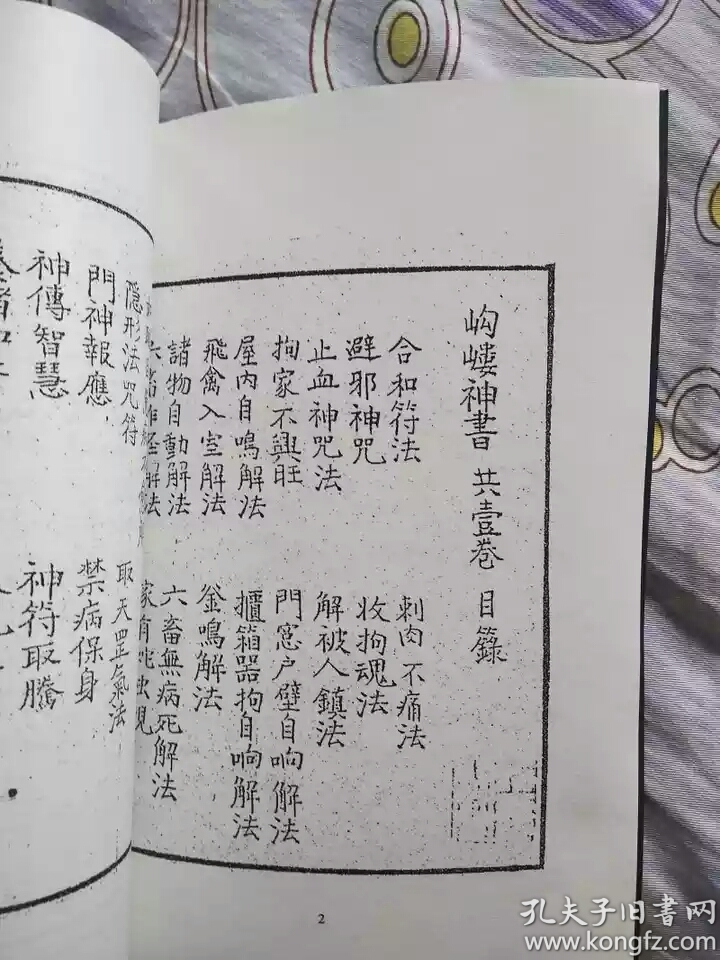 岣嶁神書 共壹卷 目錄
合和符法 刺肉不痛法
避邪神咒 收拘魂法
止血神咒法 解被人鎮法
拘家不興旺 門窓户壁自响解法
屋内自鳴解法 櫃箱器拘自响解法
飛禽入室解法 釜鳴解法
諸物自動解法 六畜無病死解法
六畜作怪解法 家有蛇虫現
隱形法咒符 取天罡氣法
門神報應 禁病保身
神傳智慧 神符取騰
2
孔夫子旧書网
www.kongfz.com